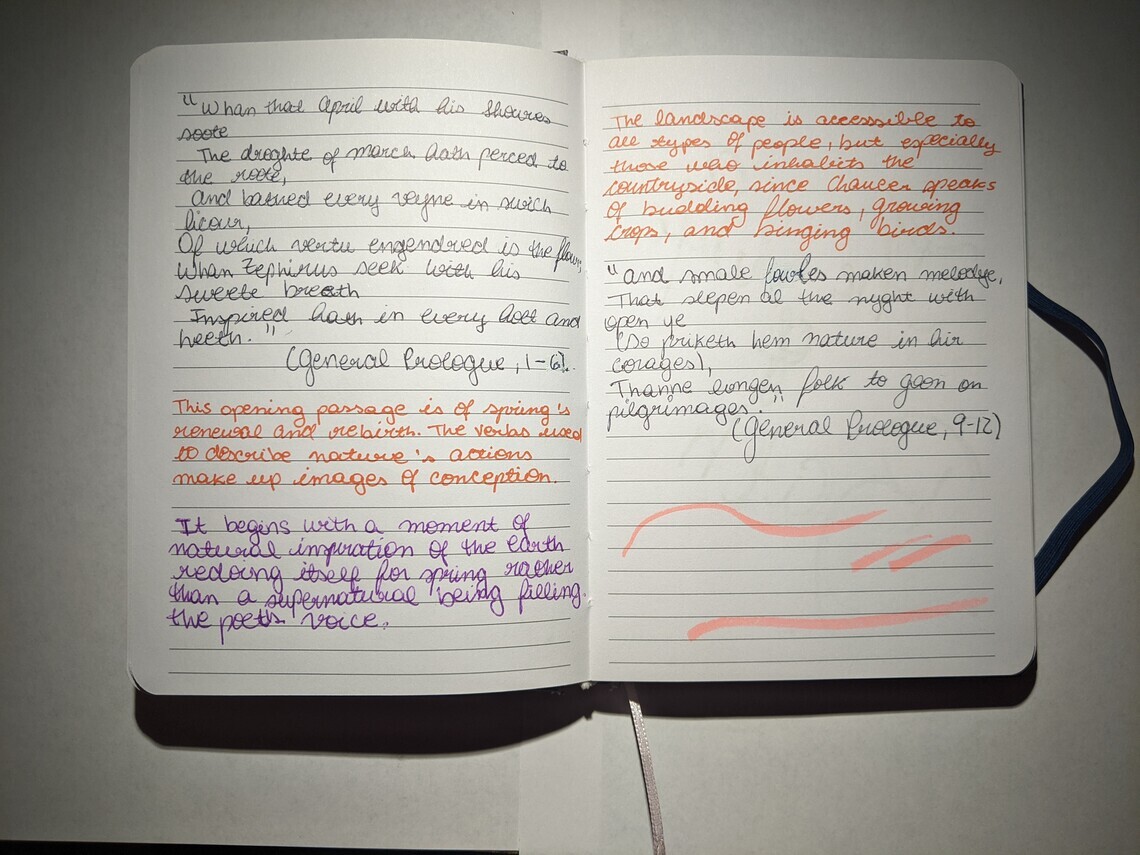 "Whan that April with his Showres
soote
The droghte of march hath perced to
the roote,
and bathed every veyne in swich
licour,
Of which vertu engendred is the flour,
Whan Zephirus seek with his
sweete breath
Inspired hath in every holt and
heeth."
(General Prologue, 1-6).
This opening passage is of spring's
renewal and rebirth. The verbs used
to describe nature's actions
make up images of conception.
It begins with a moment of
natural inspiration of the earth
redoing itself for spring rather
than a supernatural being filling
the poet's voice.
The landscape is accessible to
all types of people, but especially
those who inhabits the
countryside, since Chaucer speaks
of budding flowers, growing
crops, and singing birds.
"and smale fowles maken melodye,
That slepen al the nyght with
open ye
(So priketh hem nature in hir
corages),
Thanne longen folk to goon on
pilgrimages."
(General Prologue, 9-12)